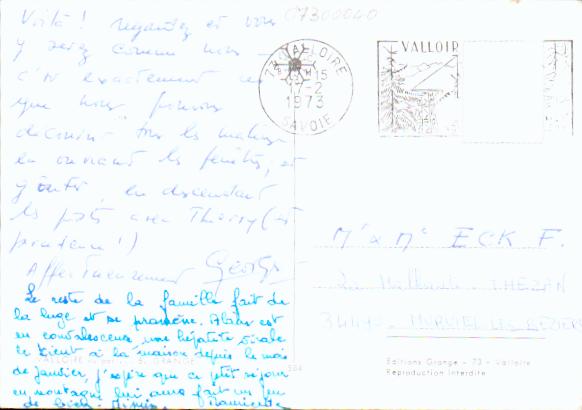 Voilà ! regardez et vous
y serez comme nous
C'est exactement ce
que nous pouvons
découvrir tous les matins
en ouvrant les fenêtres, et
goûter, en descendant
les pistes avec Thierry (et
prudence !)
Affectueusement Georges
Le reste de la famille fait de
la luge et se promène. Alain est
en convalescence, une hépatite virale
le tient à la maison depuis le mois
de janvier, j'espère que ce petit séjour
en montagne lui aura fait un peu
de bien. Mauricette
07300040
73 VALLOIRE
15
17-2
1973
SAVOIE
VALLOIR
Mr & Me ECK F.
THEZAN
34490 MURVIEL LES BEZIERS
Editions Grange - 73 - Valloire
Reproduction interdite